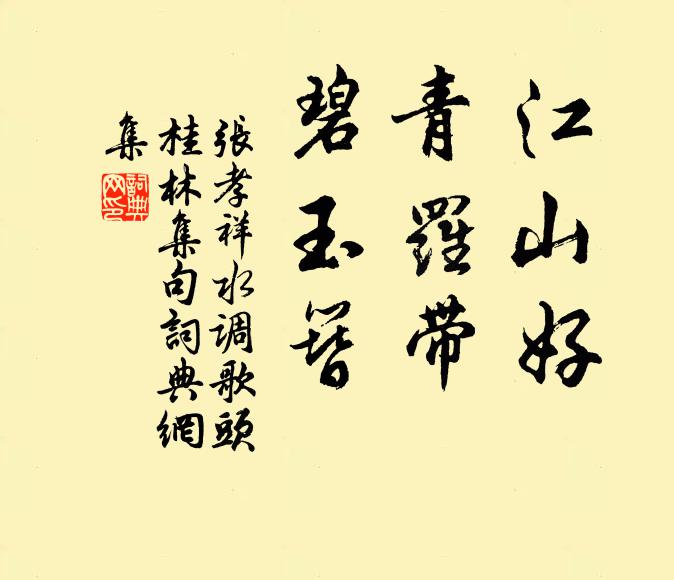 江山好
青羅带
碧玉簪
張孝祥水调歌頭
桂林集句詞典網
集
詞典
网印